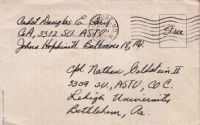 Cadet Douglas E. Barry
Co A, 3312 SU, ASTU
Johns Hopkins U. Baltimore 18, Md.
Free
Cpl Nathan Goldstein II
3309 SU, ASTU, CO C.
Lehigh University
Bethlehem, Pa.